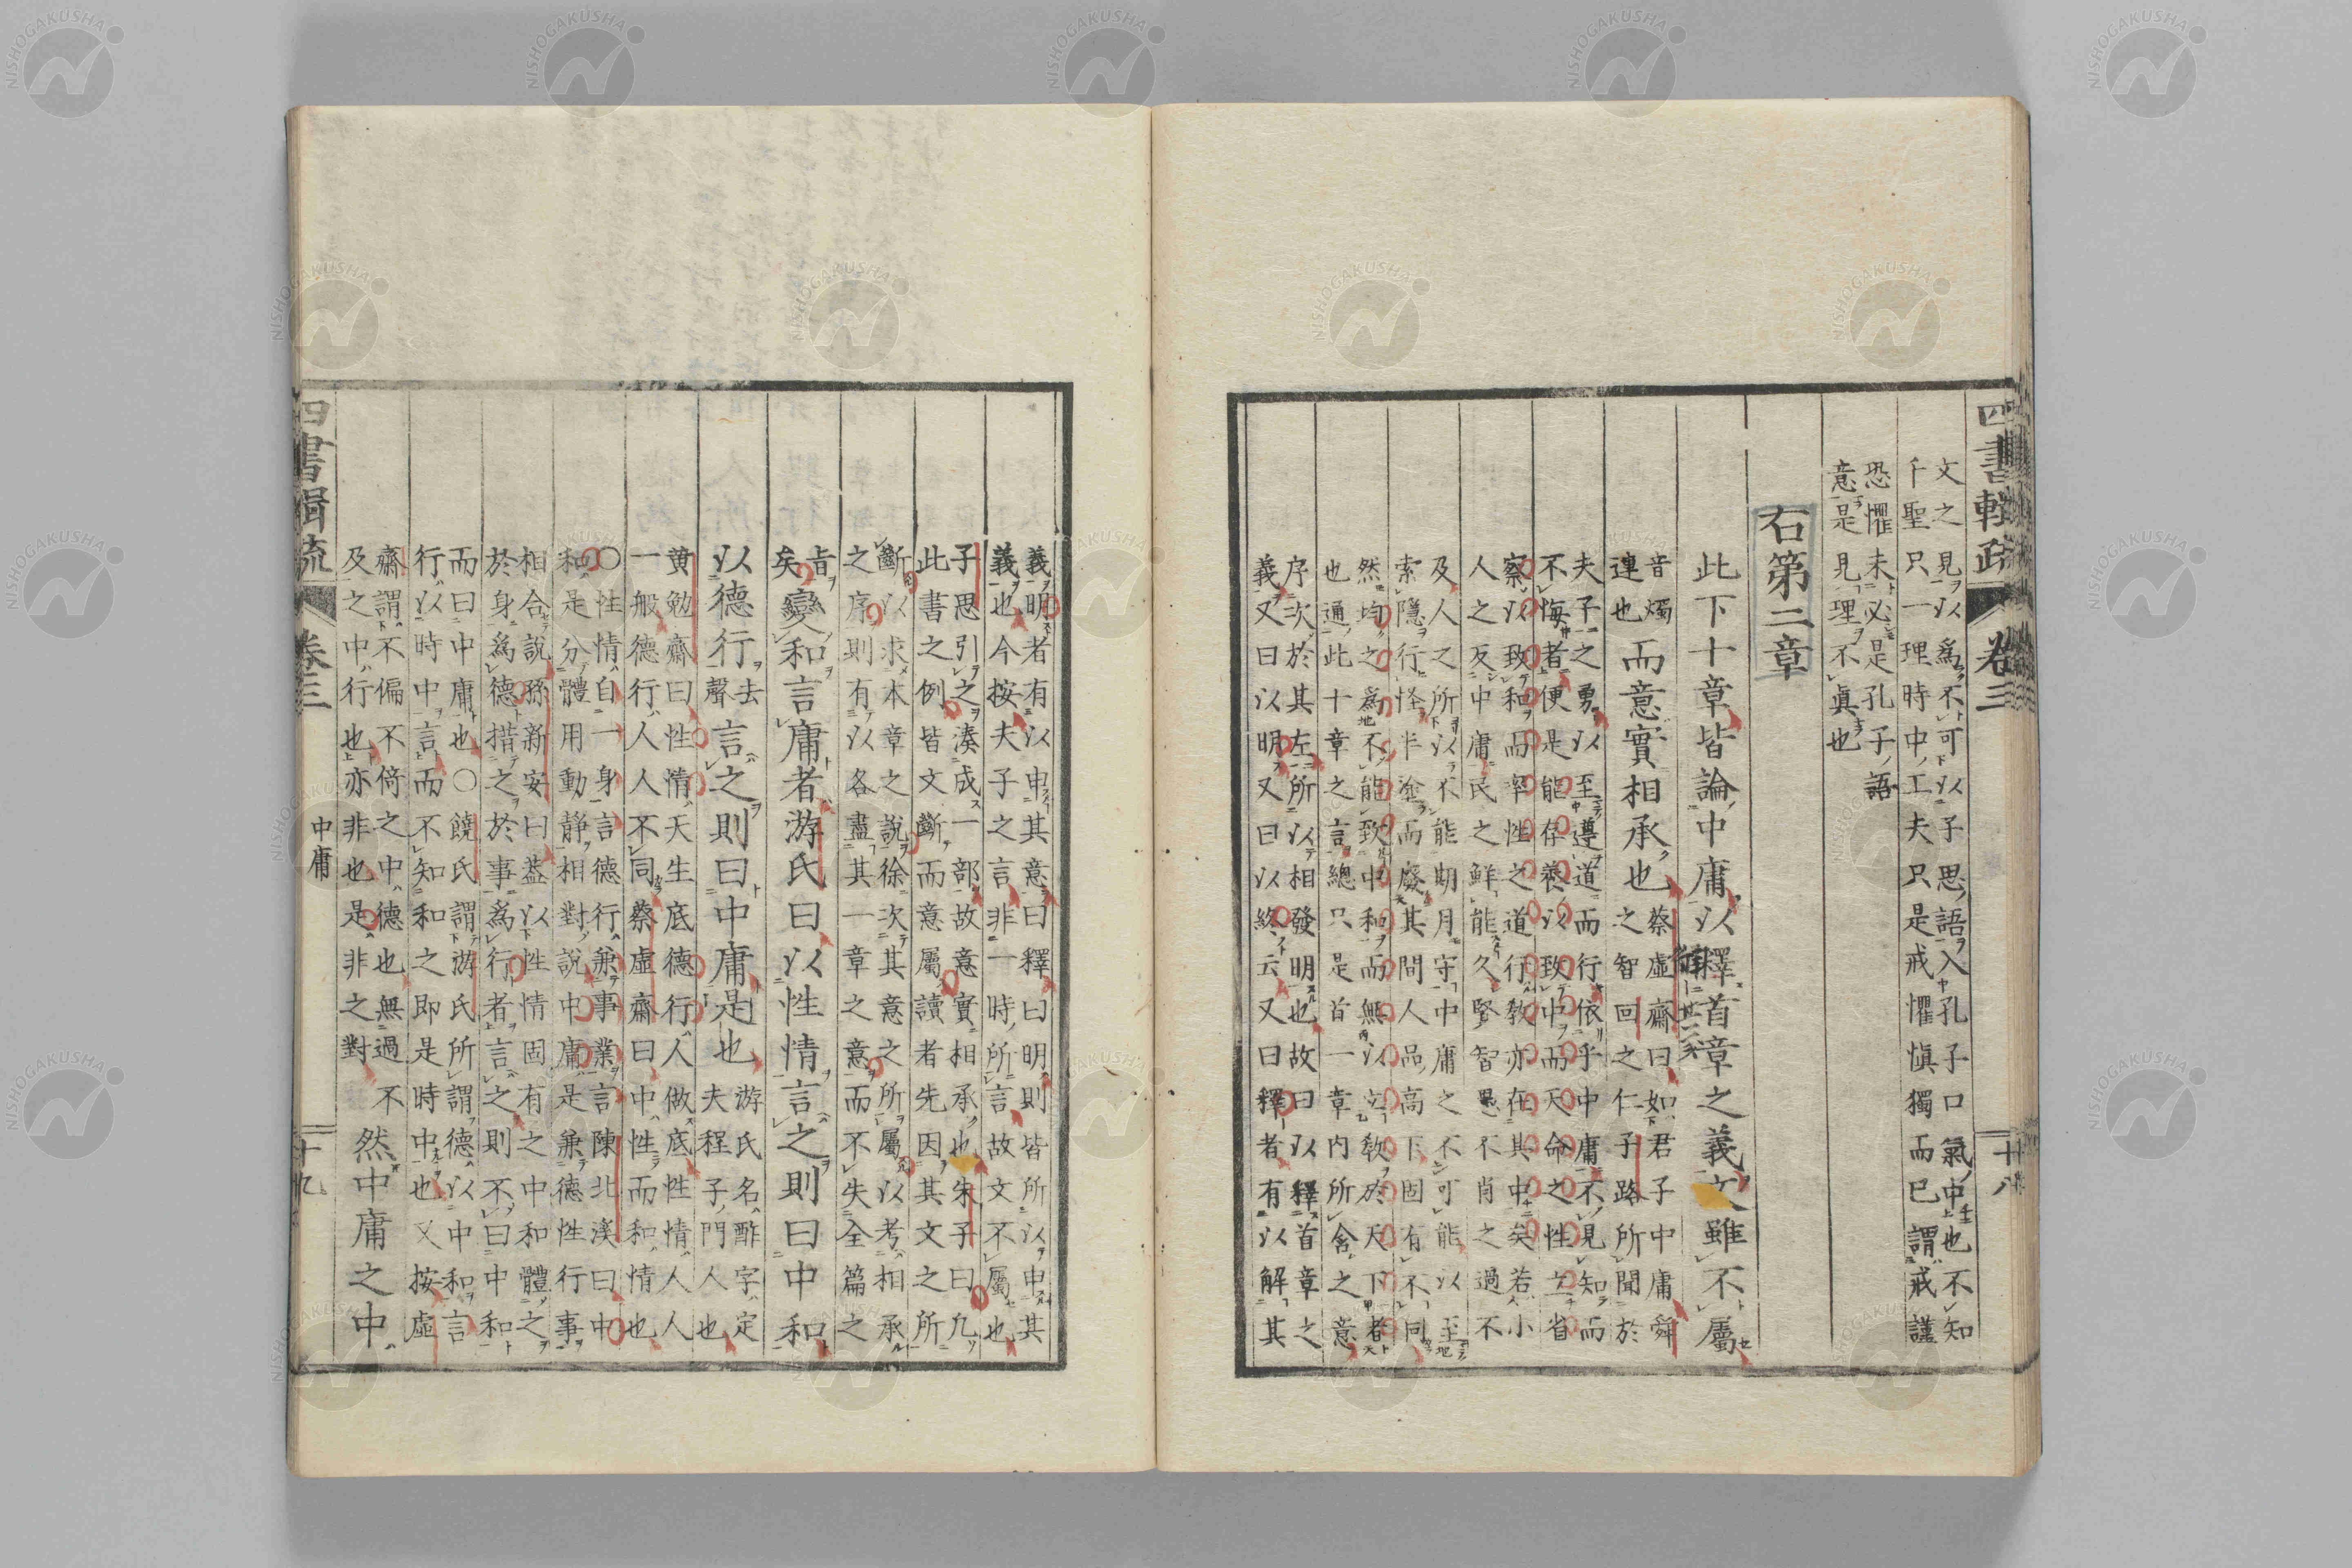 四書輯疏
卷三
十八
文之見以爲不可以子思語入孔子口氣中也不知
千聖只一理時中工夫只是戒懼愼獨而已謂戒謹
恐懼未必是孔子語
意是見理不眞也
右第二章
此下十章皆論中庸以釋首章之義文雖不屬
音燭
連也
而意實相承也
蔡虛齋曰如君子中庸舜
之智回之仁子路所聞於
夫子之勇以至遵道而行依乎中庸不見知而
不悔者便是能存養以致中而天命之性立省
察以致和而率性之道行教亦在其中矣若小
人之反中庸民之鮮能久賢智愚不肖之過不
及人之所以不能期月守中庸之不可能以至
索隱行怪半塗而廢其間人品高下固有不同
然均之爲不能致中和而無以立教於天下者
也通此十章之言總只是首一章内所含之意
序次於其左所以相發明也故曰以釋首章之
義又曰以明又曰以終云又曰釋者有以解其
義明者有以申其意曰釋曰明則皆所以申其
義也今按夫子之言非一時所言故文不屬也
子思引之湊成一部故意實相承也朱子曰凡
此書之例皆文斷而意屬讀者先因其文之所
斷以求本章之說徐次其意之所屬以考相承
之序則有以各盡其一章之意而不失全篇之
旨
矣
變和言庸者游氏曰以性情言之則曰中和
以德行
去
聲
言之則曰中庸是也
游氏名酢字定
夫程子門人也
黄勉齋曰性情天生底德行人做底性情人人
一般德行人人不同蔡虛齋曰中性而和情也
○性情自一身言德行兼事業言陳北溪曰中
和是分體用動靜相對說中庸是兼德性行事
相合說孫新安曰蓋以性情固有之中和體之
於身爲德措之於事爲行者言之則不曰中和
而曰中庸也○饒氏謂游氏所謂德以中和言
行以時中言而不知和之即是時中也又按虛
齋謂不偏不倚之中德也無過不
及之中行也亦非也是非之對
然中庸之中
四書輯疏
卷三
中庸
十九
NISHOGAKUSHA